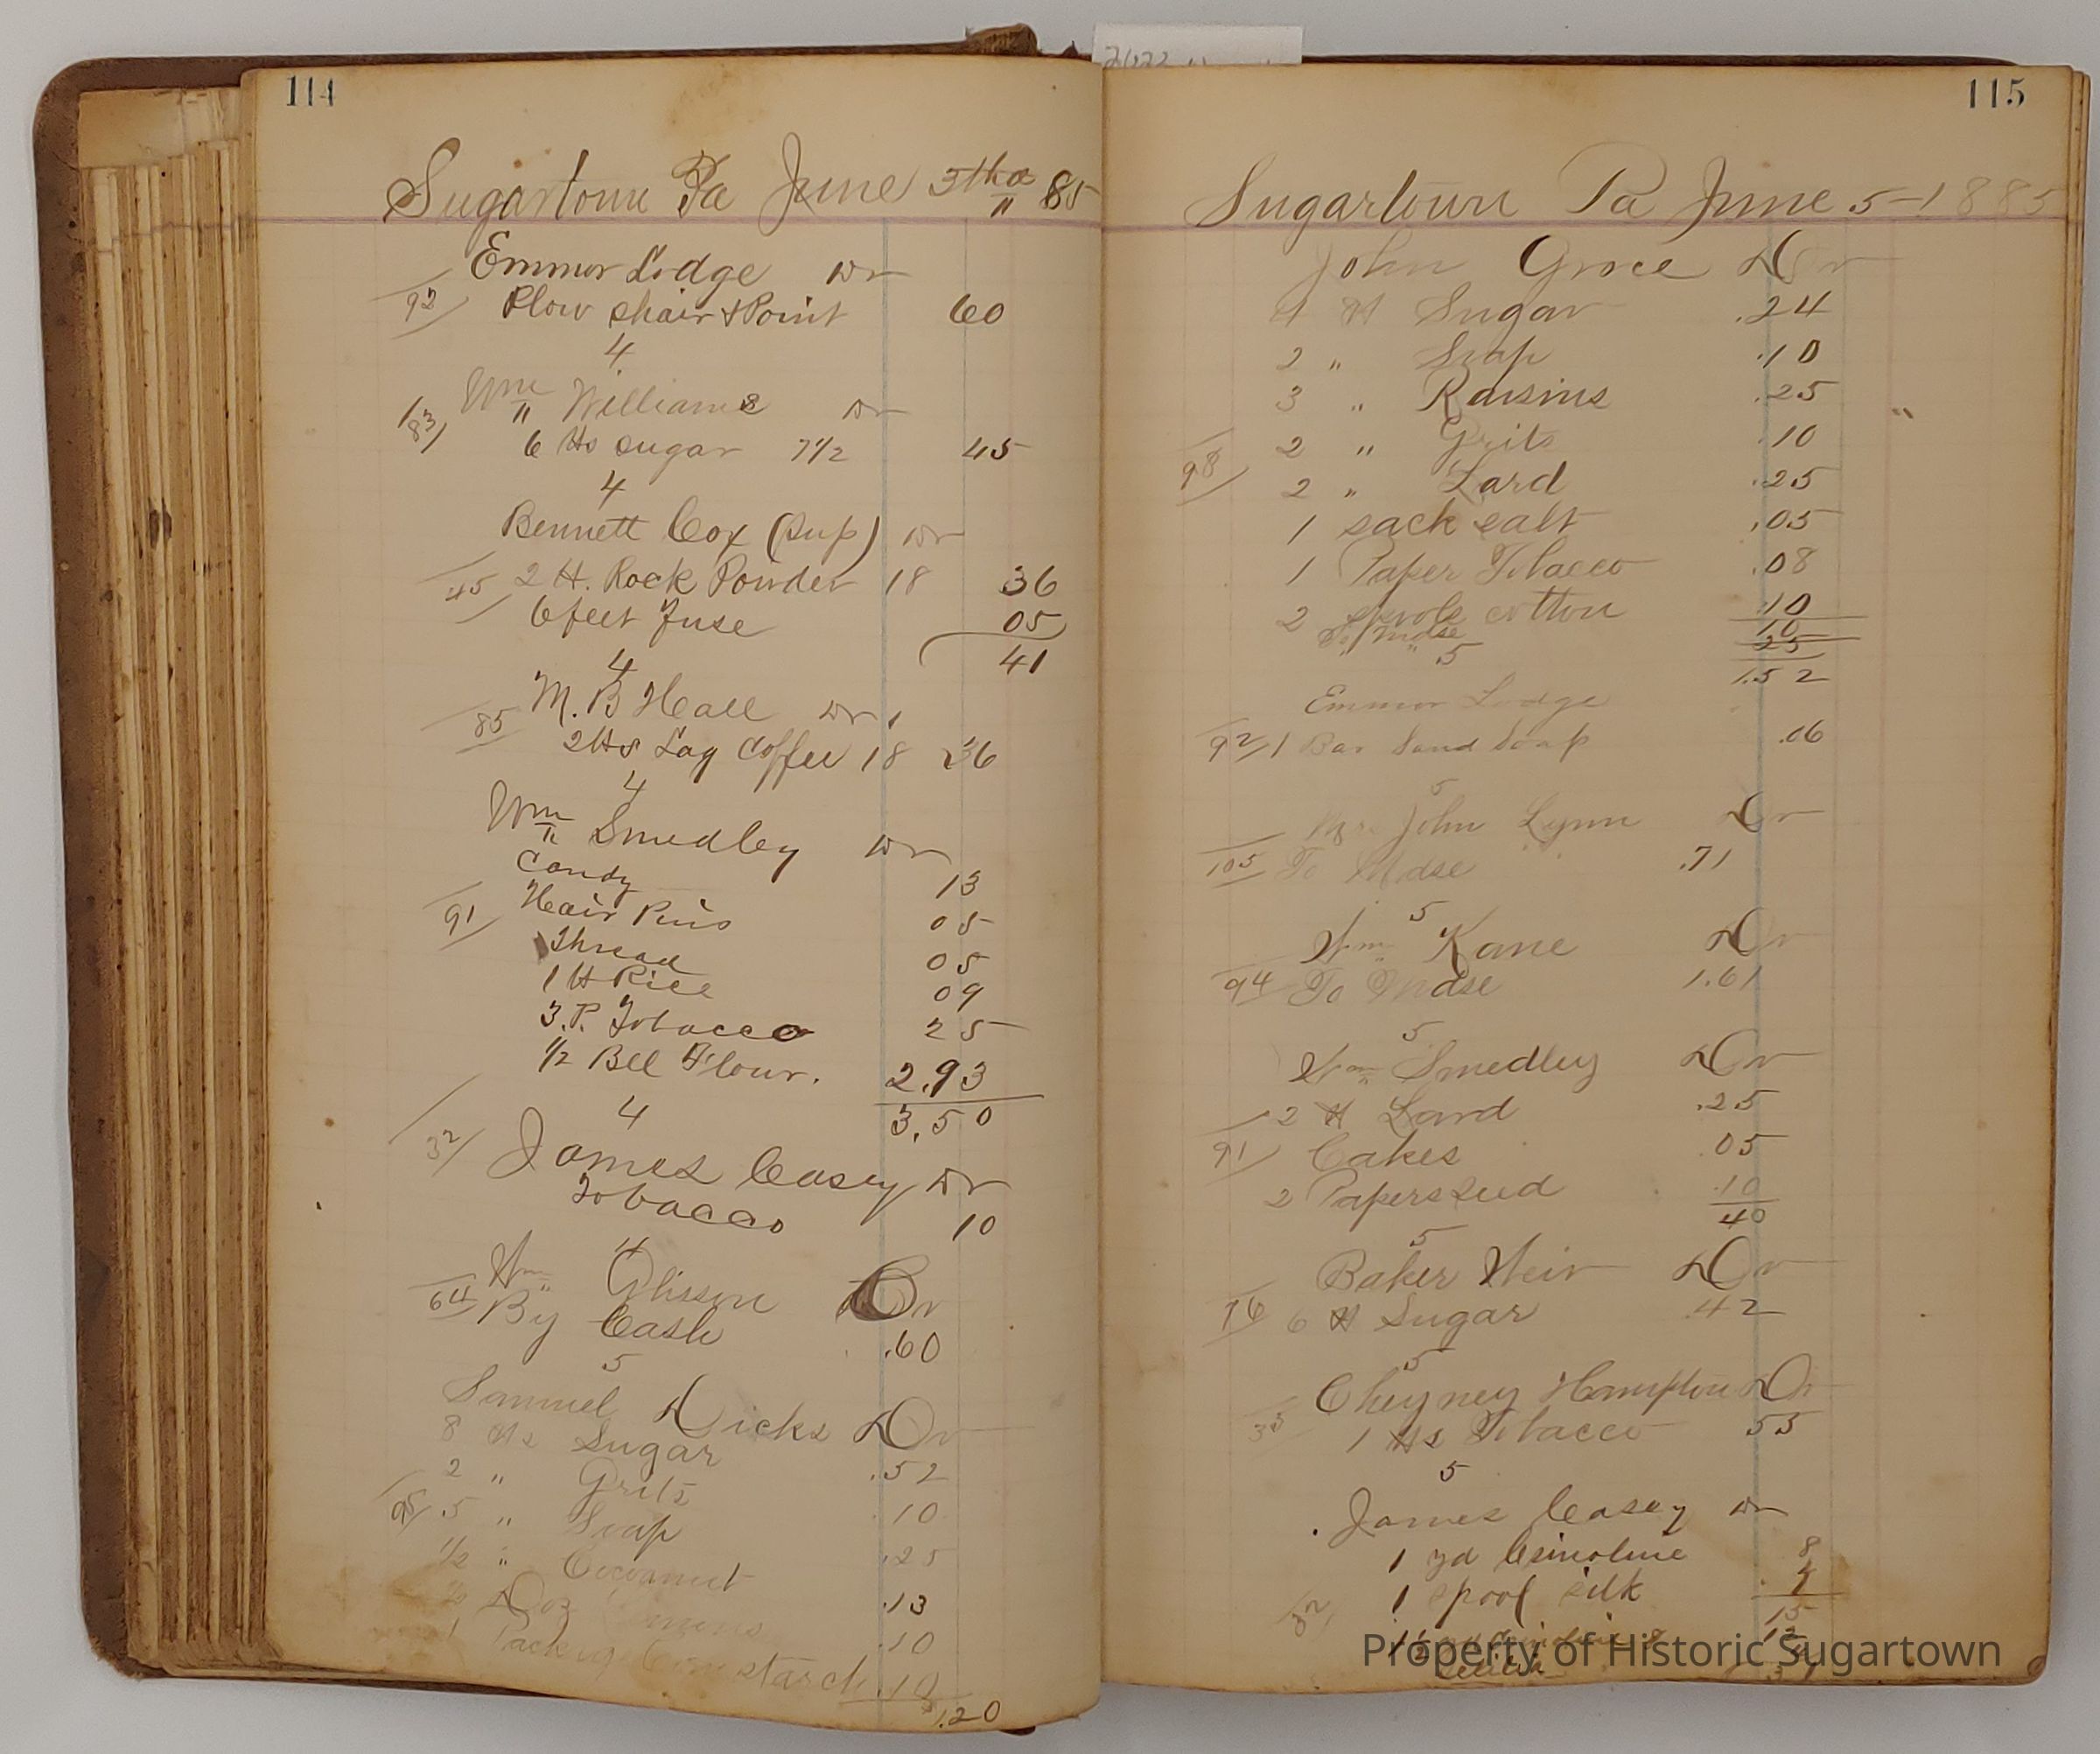 114
Sugartown Pa June 5th 85
Emmor Lodge Dr
92 Plow Shair & Point 60
4
Wm Williams Dr
183 6 lbs sugar 7 1/2 45
4
Bennett Cox (Sup) Dr
45 2 lb. Rock Powder 18 36
6 feet Fuse 05
41
4
M. B Hall Dr
85 2 lbs Lag Coffee 18 36
4
Wm Smedley Dr
Candy 13
91 Hair Pins 05
Thread 05
1 lb Rice 09
3. P. Tobacco 25
1/2 Bll Flour. 2.93
3.50
4
32 James Casey Dr
Tobacco 10
4
Wm Glisson Cr
64 By Cash .60
5
Samuel Dicks Dr
8 lbs Sugar .52
2 " Grits 10
95 5 " Soap .25
1/2 " Cocoanut .13
1/2 Doz .10
1 Packig Corn starch .10
1.20
115
Sugartown Pa June 5 - 1885
John Grace Dr
4 lb Sugar .24
2 " Soap .10
3 " Raisins .25
2 " Grits .10
98 2 " Lard .25
1 sack salt .05
1 Paper Tobacco .08
2 spools cotton .10
To Mdse 10
" 25
5 1.52
Emmor Lodge
92 1 Bar Sand Soap .06
5
John Lynn Dr
105 To Mdse .71
5
Wm Kane Dr
94 To Mdse 1.61
5
Wm Smedley Dr
2 lb Lard .25
91 Cakes 05
2 Papers seed .10
40
5
Baker Weir Dr
76 6 lb Sugar .42
5
Cheyney Hampton Dr
33 1 lbs Tobacco 55
5
James Casey Dr
1 yd Crinoline 8
1 spool silk
32 15
Property of Historic Sugartown